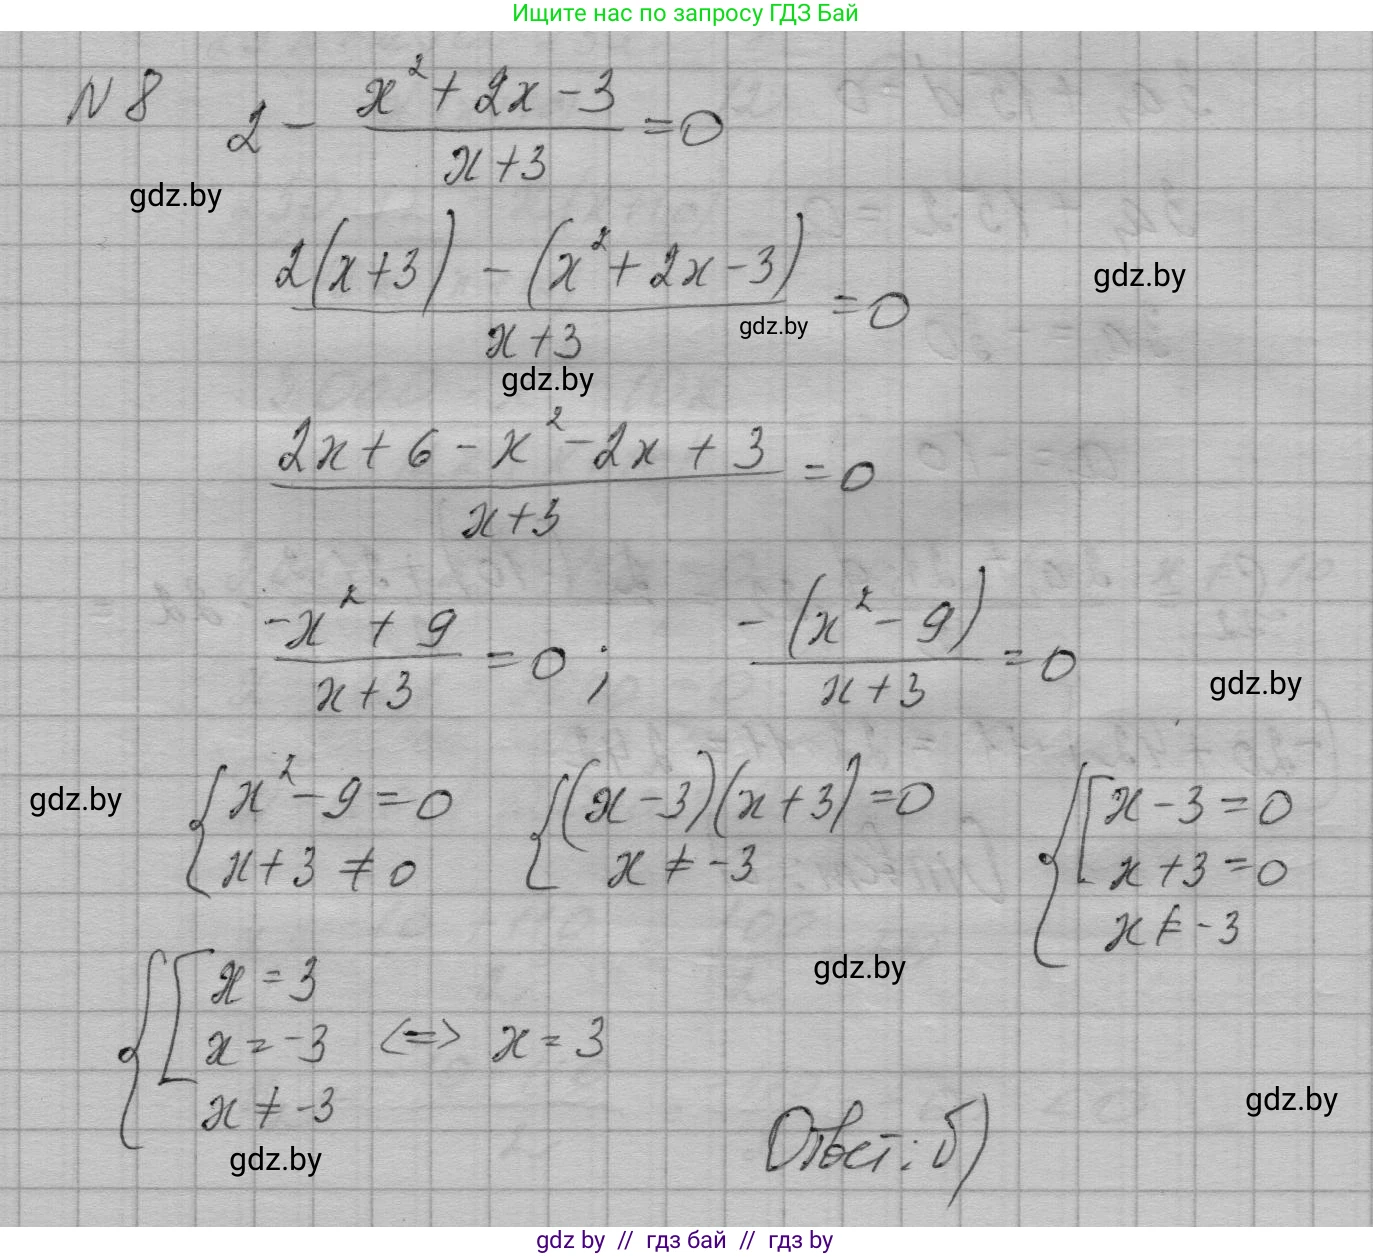 Ищите нас по запросу ГДЗ Бай
N 8   2 - (x² + 2x - 3)/(x + 3) = 0
gdz.by
(2(x+3) - (x² + 2x - 3))/(x + 3) = 0
gdz.by
gdz.by
gdz.by
(2x + 6 - x² - 2x + 3)/(x+3) = 0
(-x² + 9)/(x+3) = 0 ;   (-(x² - 9))/(x+3) = 0
gdz.by
gdz.by
{ x² - 9 = 0   { (x-3)(x+3) = 0   { [ x - 3 = 0
x+3 ≠ 0   x ≠ -3   x + 3 = 0
x ≠ -3
gdz.by
{ [ x = 3
x = -3   <=> x = 3
x ≠ -3
gdz.by
Ответ: б)
gdz.by
gdz by // гдз бай // гдз by